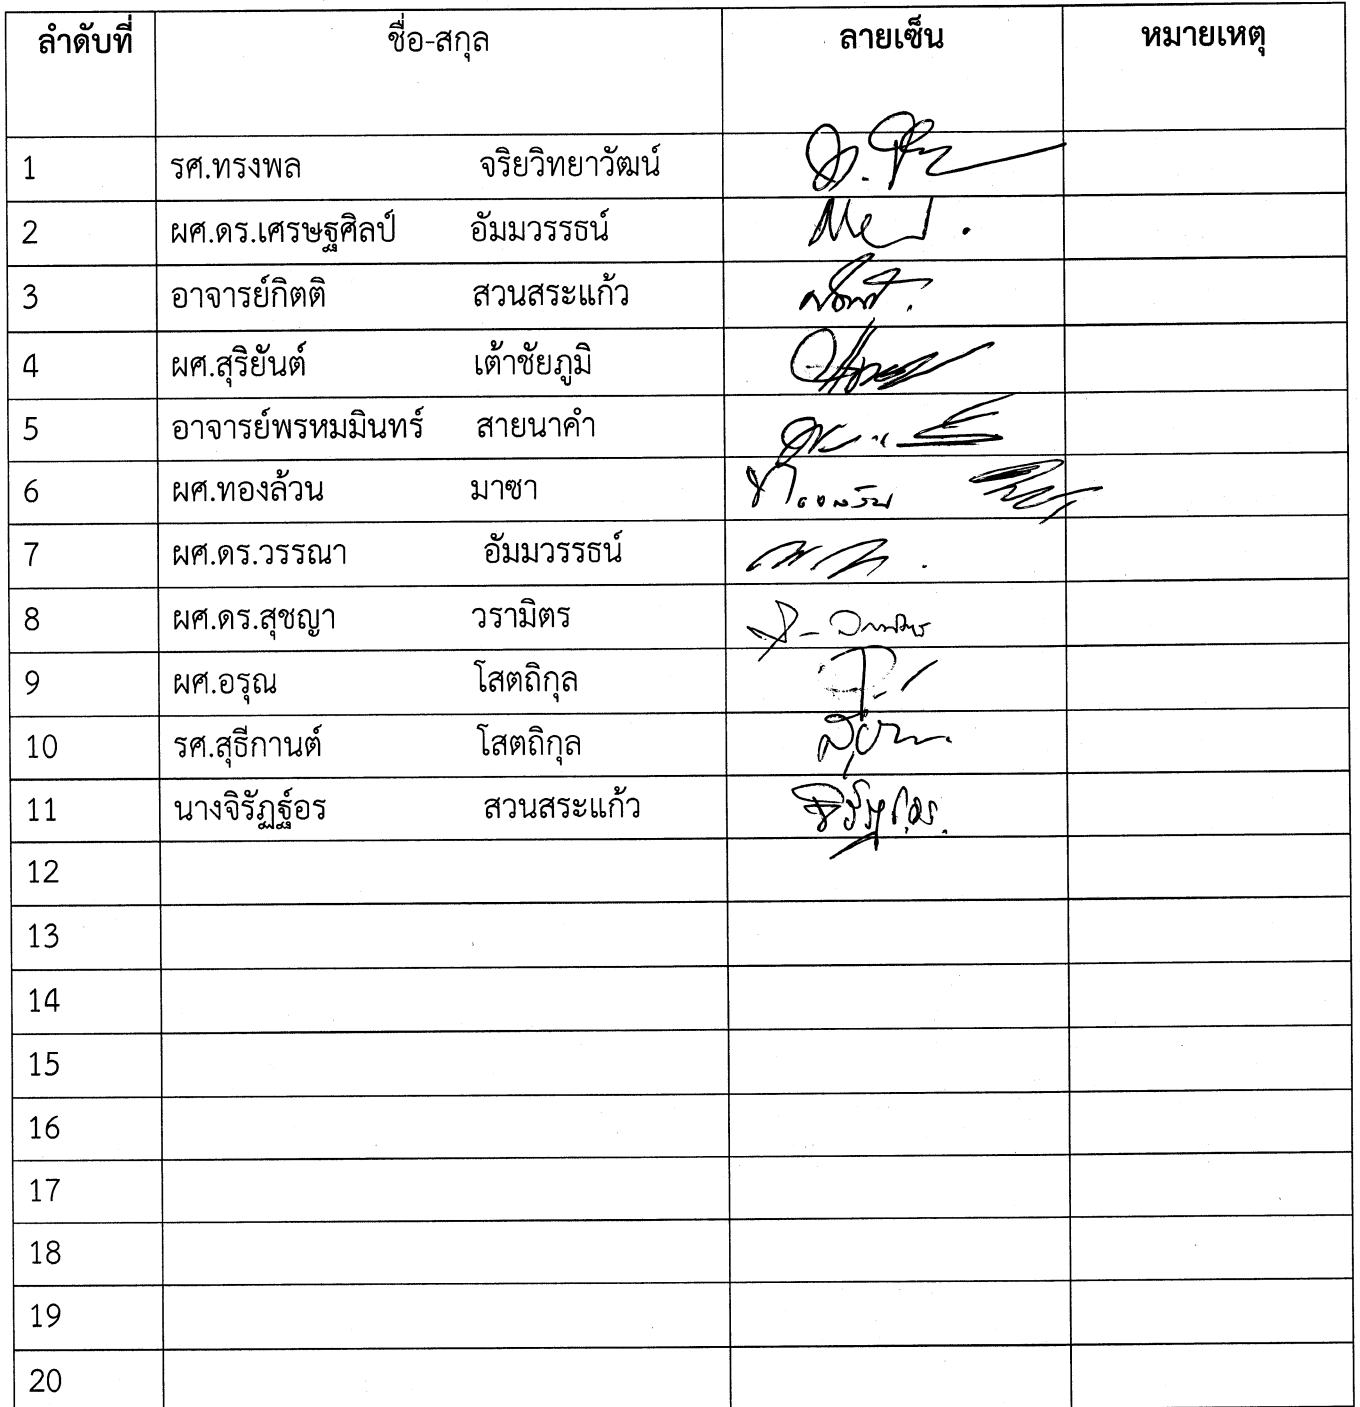 ลำดับที่ ชื่อ-สกุล ลายเซ็น หมายเหตุ
1 รศ.ทรงพล จริยวิทยาวัฒน์
2 ผศ.ดร.เศรษฐศิลป์ อัมมวรรธน์
3 อาจารย์กิตติ สวนสระแก้ว
4 ผศ.สุริยันต์ เต้าชัยภูมิ
5 อาจารย์พรหมมินทร์ สายนาคำ
6 ผศ.ทองล้วน มาซา
7 ผศ.ดร.วรรณา อัมมวรรธน์
8 ผศ.ดร.สุชญา วรามิตร
9 ผศ.อรุณ โสตถิกุล
10 รศ.สุธีกานต์ โสตถิกุล
11 นางจิรัฏฐ์อร สวนสระแก้ว
12
13
14
15
16
17
18
19
20